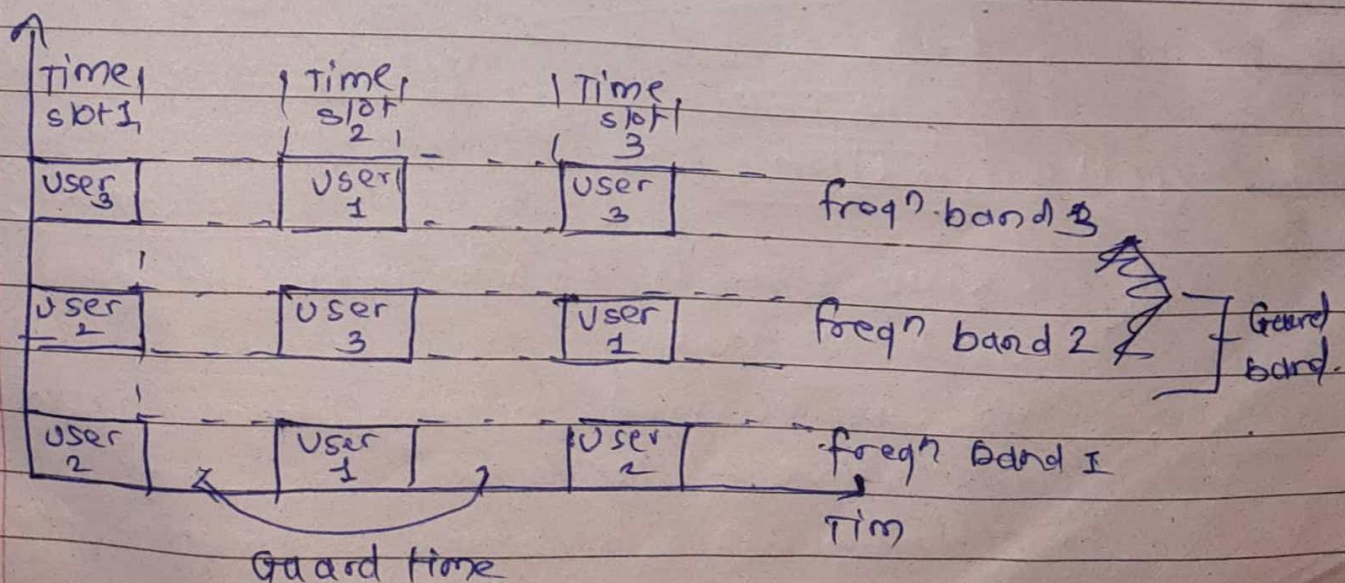 Time
slot 1
Time
slot
2
Time
slot
3
User
3
User
1
User
3
freqn band 3
User
2
User
3
User
1
freqn band 2
Guard
band.
User
2
User
1
User
2
freqn band I
Tim
Guard time